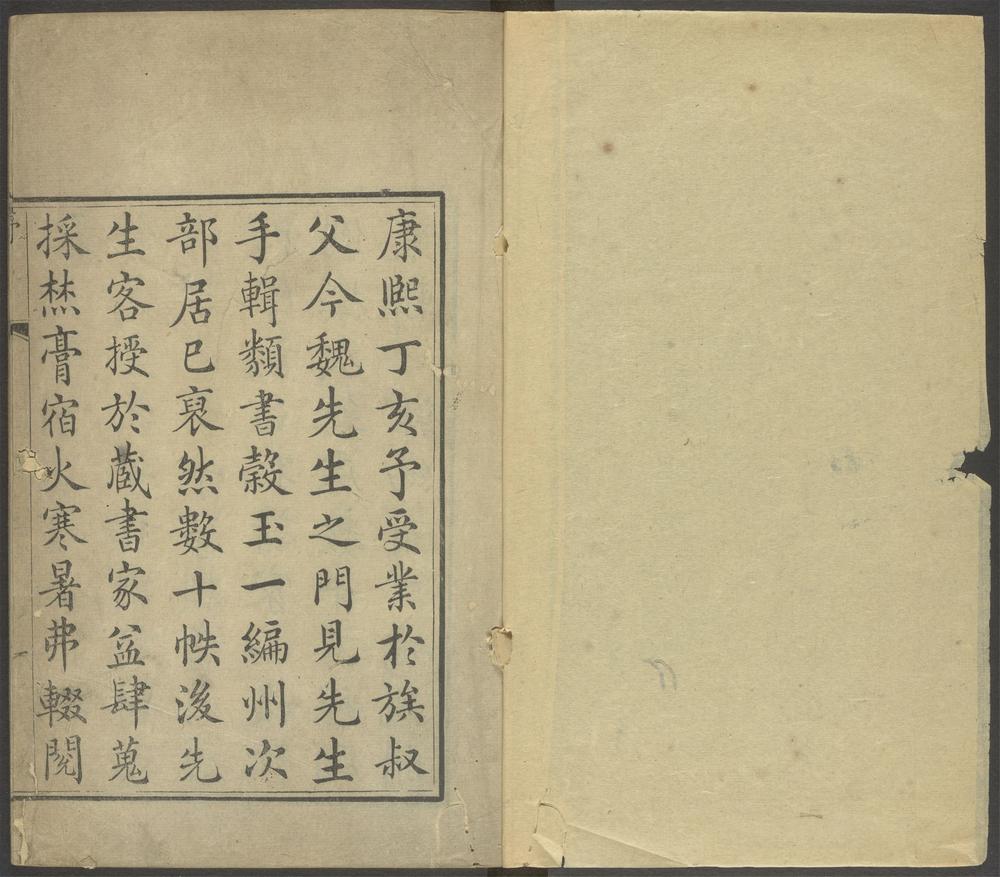 康熙丁亥予受業於族叔
父今魏先生之門見先生
手輯類書穀玉一編州次
部居已裒然數十帙後先
生客授於蔵書家益肆蒐
採焚膏宿火寒暑弗輟閱